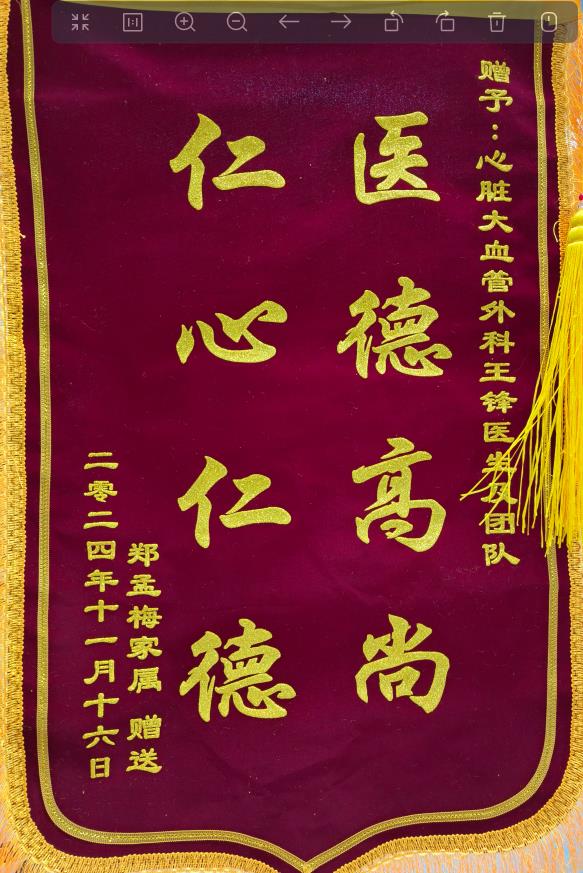 赠予：心脏大血管外科王锋医生及团队
医德高尚
仁心仁德
郑孟梅家属 赠送
二零二四年十一月十六日